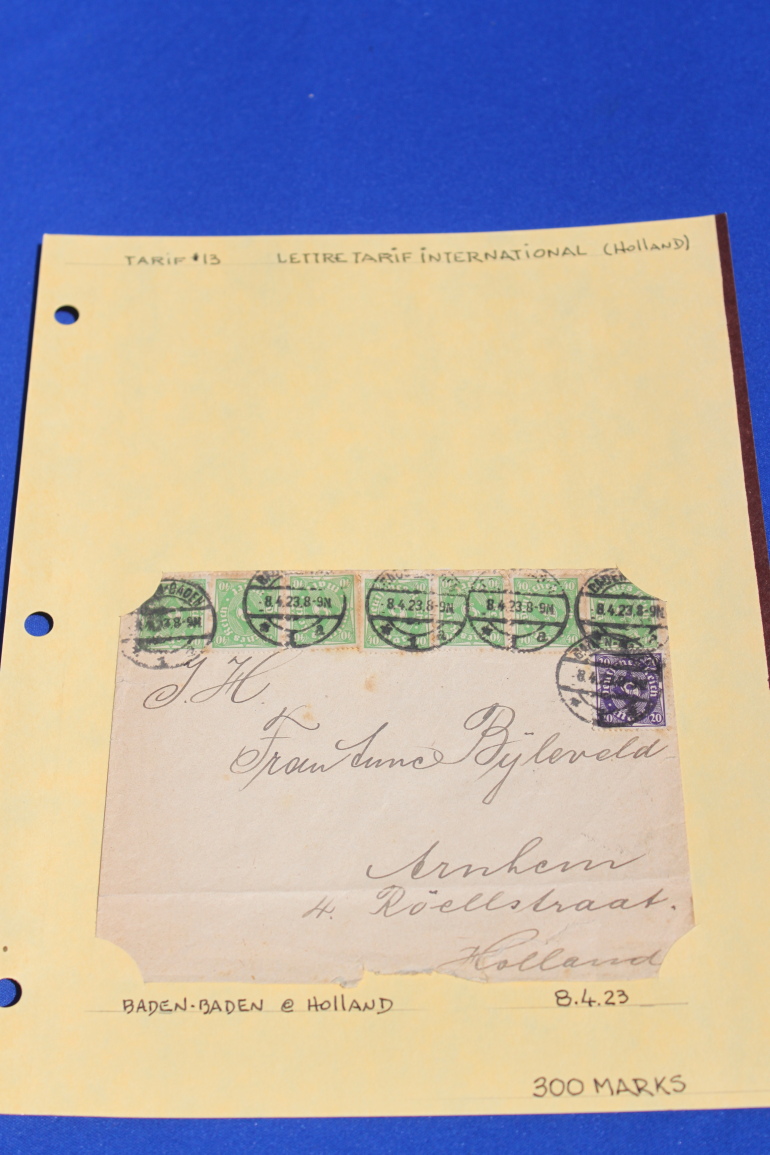 TARIF #13 LETTRE TARIF INTERNATIONAL (HOLLAND)
BADEN-BADEN
8.4.23.8-9N
8.4.23.8-9N
8.4.23.8-9N
8.4.23.8-9N
8.4.23.8-9N
a
a
20 20
Frau Bijleveld
Arnhem
4. Röellstraat.
Holland
BADEN-BADEN @ HOLLAND 8.4.23
300 MARKS